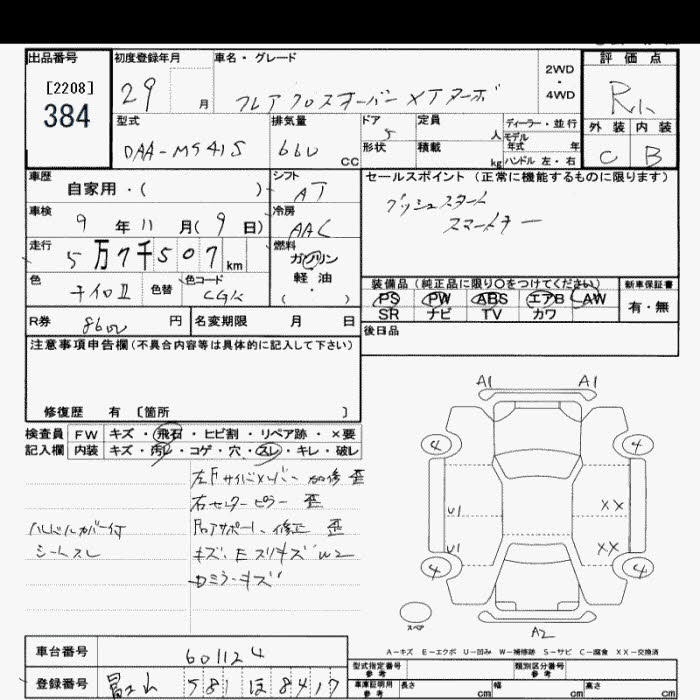 出品番号 初度登録年月 車名・グレード 評価点
[2208]
384
29 月 フレアクロスオーバー XTターボ 2WD・4WD R
型式 排気量 ドア 定員 ディーラー・並行 外装 内装
DAA-MS41S 660 CC 5 人 モデル年式 年 C B
形状 積載 kg ハンドル 左・右
車歴 シフト セールスポイント (正常に機能するものに限ります)
自家用・( ) AT プッシュスタート
車検 冷房 スマートキー
9 年 11 月(9 日) AAC
走行 燃料
5万7千507 km ガソリン
軽油
( ・ )
色 色替 色コード 装備品 (純正品に限り○をつけてください) 新車保証書
CGK PS PW ABS エアB AW 有・無
SR ナビ TV カワ
R券 8600 円 名変期限 月 日 後日品
注意事項申告欄(不具合内容等は具体的に記入して下さい)
修復歴 有 [箇所 ]
検査員 FW キズ・飛石・ヒビ割・リペア跡・×要
記入欄 内装 キズ・汚レ・コゲ・穴・スレ・キレ・破レ
左F サイドメンバー 歪
右センターピラー 歪
ハンドルカバー付 修正 歪
シートスレ キズ、E スリキズ W2
ミラーキズ
A1 A1
4 4
U1 XX
U1 XX
4 4
スペア
A2
A-キズ E-エクボ U-凹み W-補修跡 S-サビ C-腐食 XX-交換済
車台番号 601124
登録番号 富士山 581 ほ 8417
型式指定番号 参考 類別区分番号 参考
車庫証明用 参考 長さ cm 幅 cm 高さ cm